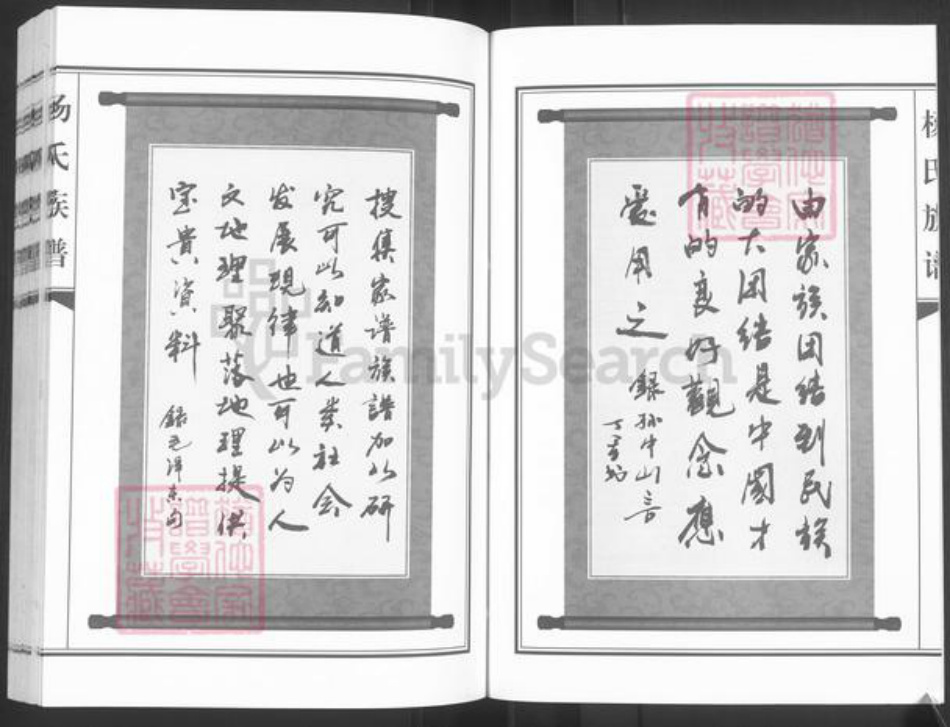 杨氏族谱
由家族团结到民族
的大团结是中國才
有的良好觀念應
爱用之
録孙中山言
搜集家谱族谱加以研
究可以知道人类社会
发展規律也可以为人
文地理聚落地理提供
宝貴資料
録毛泽东句
杨氏族谱
FamilySearch